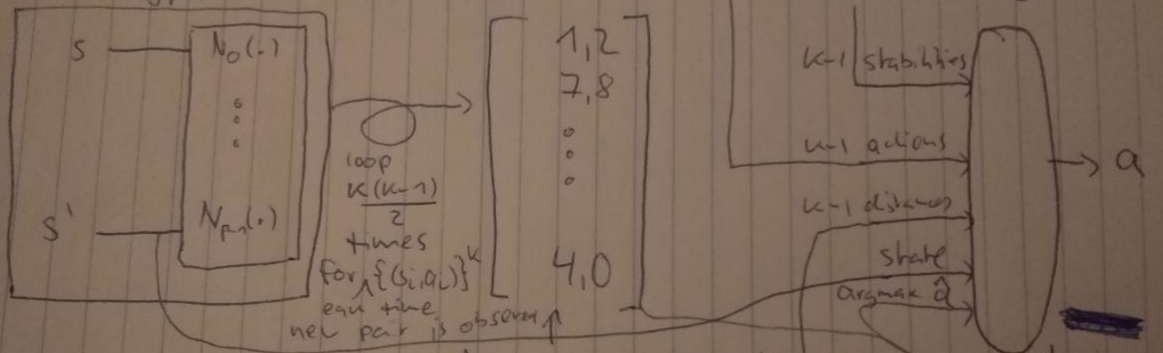 s
N₀(.)
s'
Nₚ₋₁(.)
loop
K(K-1)
2
times
for {(sᵢ,aᵢ)}ᴷ
each time
new pair is observed
1,2
7,8
4,0
K-1 stabilities
K-1 actions
K-1 distances
state
argmax â
a